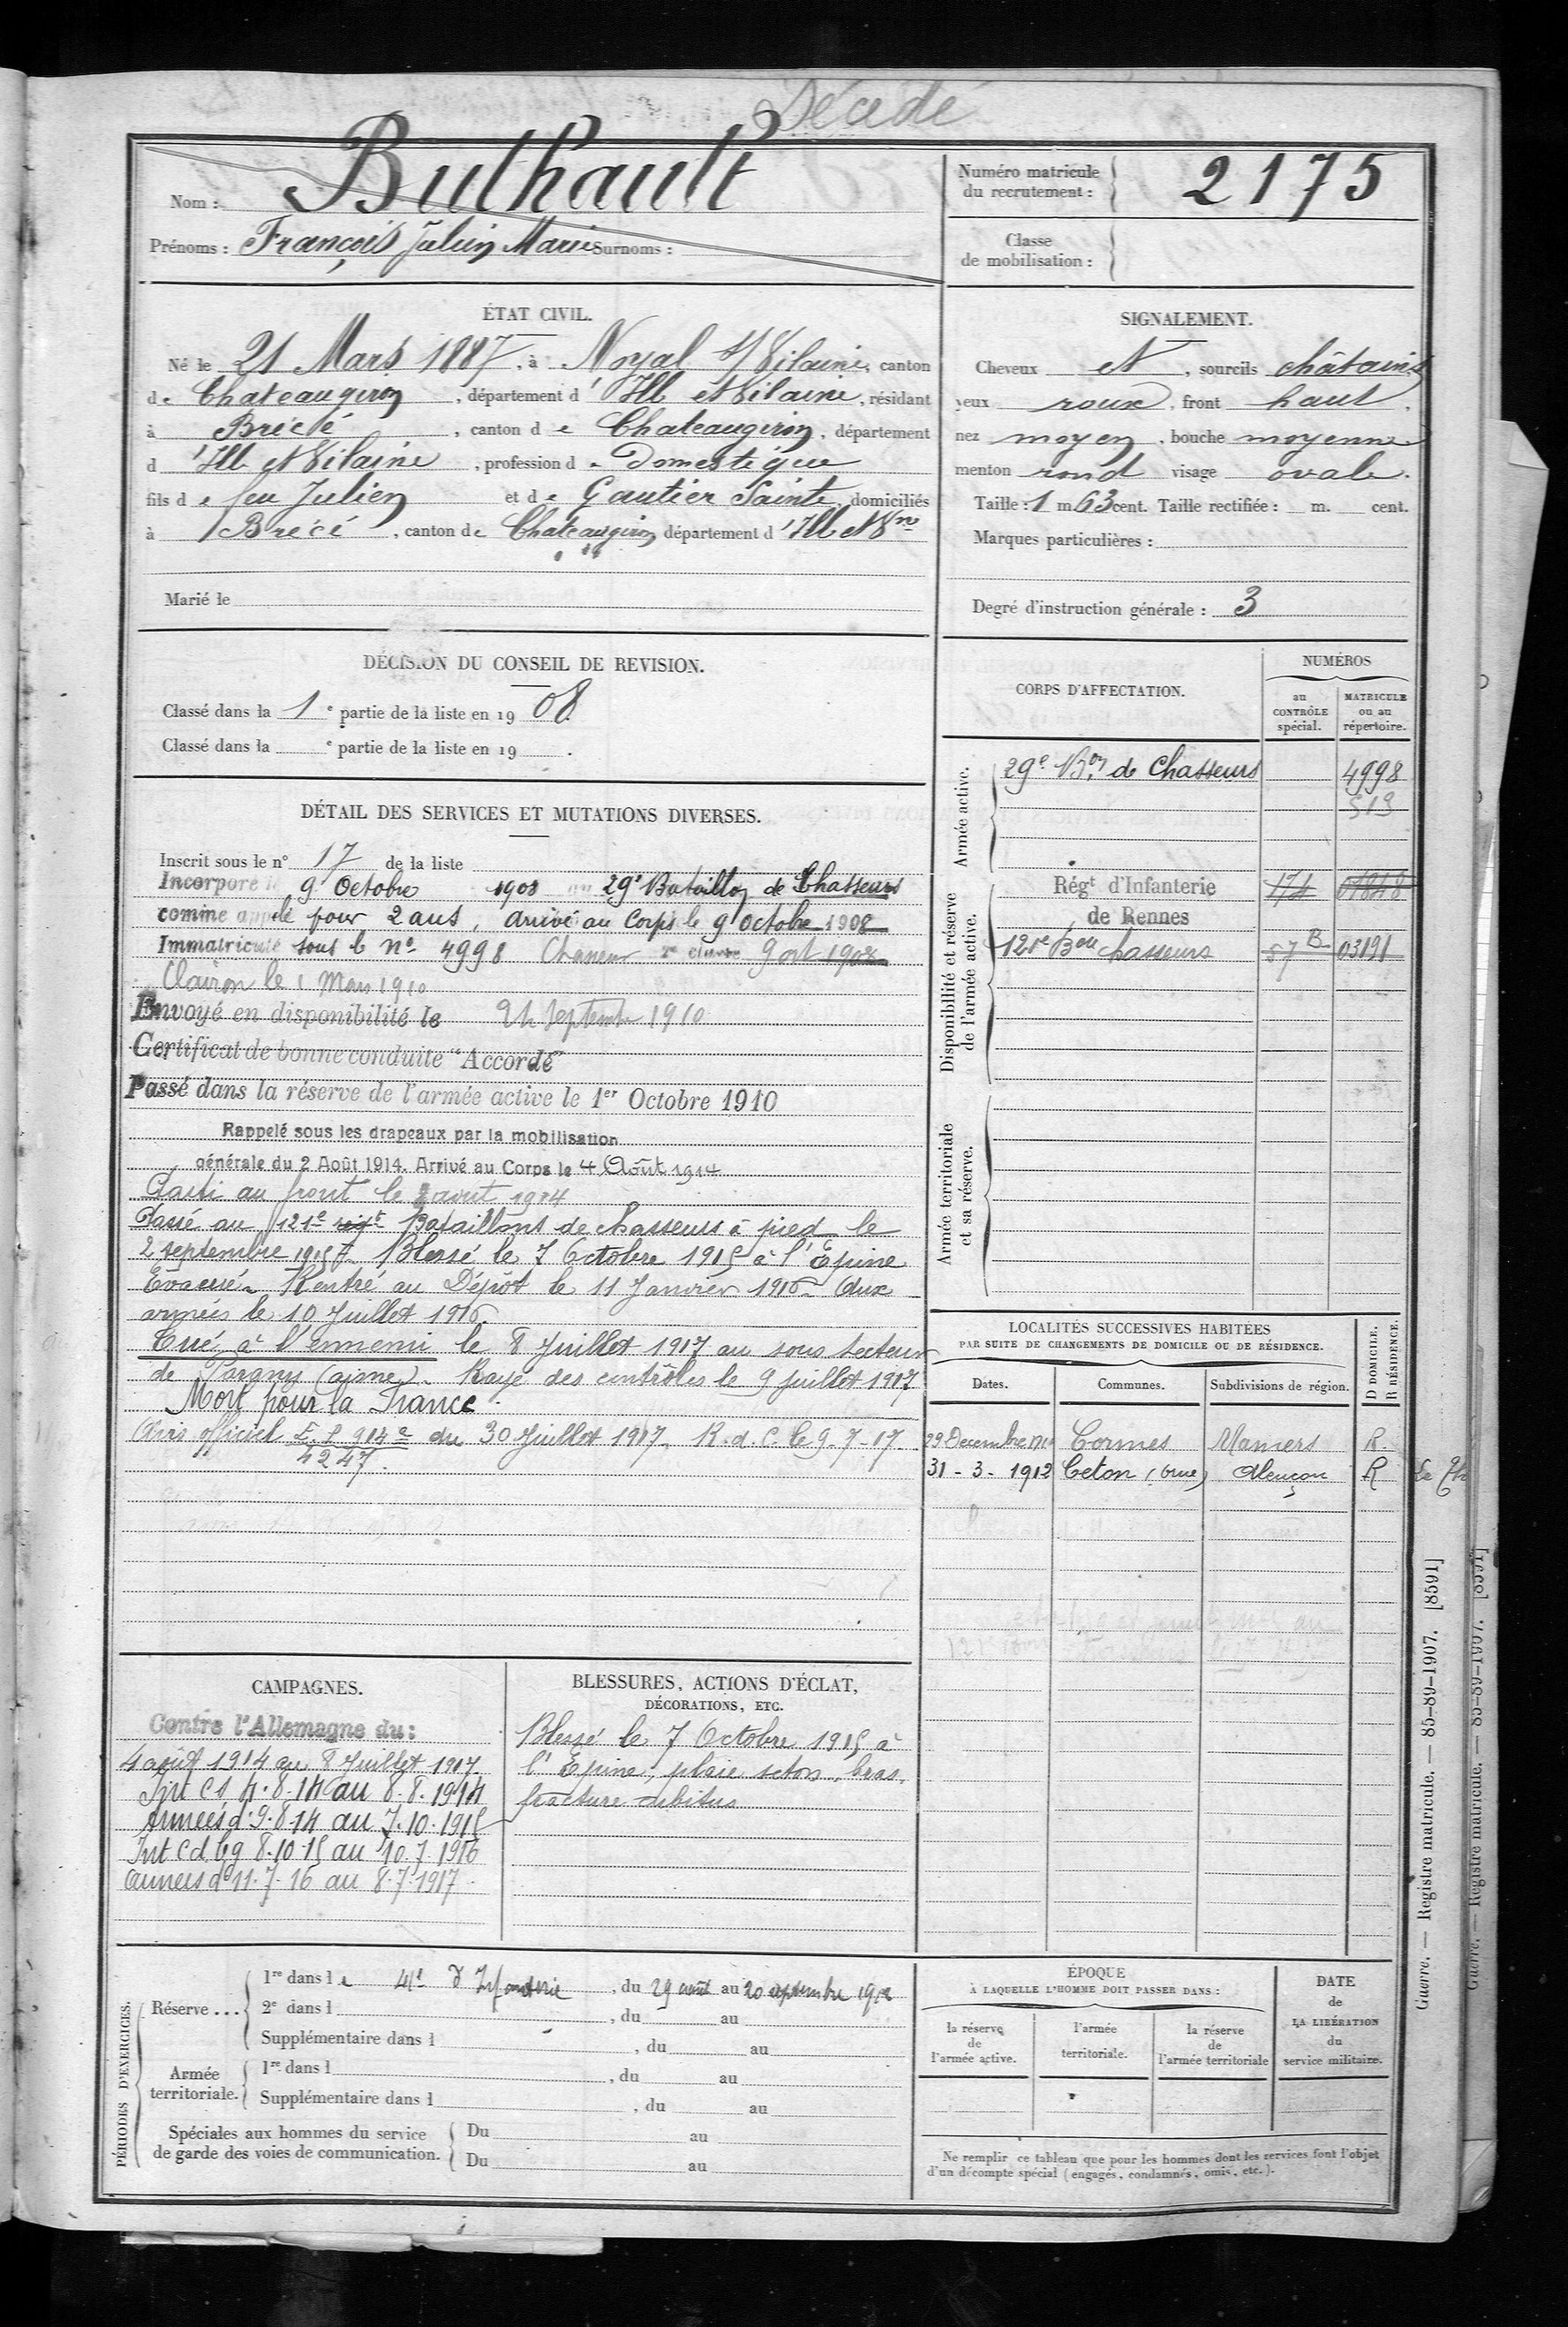 Décédé
Nom : Buthault
Prénoms : François Julien Marie Surnoms :
Numéro matricule du recrutement : 2175
Classe de mobilisation :
ÉTAT CIVIL.
Né le 21 Mars 1887, à Noyal s/Vilaine, canton
de Chateaugiron, département d'Ille et Vilaine, résidant
à Brécé, canton de Chateaugiron, département
d'Ille et Vilaine, profession de Domestique
fils de feu Julien et de Gautier Sainte, domiciliés
à Brécé, canton de Chateaugiron département d'Ille et Vne
Marié le
SIGNALEMENT.
Cheveux et, sourcils châtains
yeux roux, front haut
nez moyen, bouche moyenne
menton rond visage ovale.
Taille : 1 m. 63 cent. Taille rectifiée : m. cent.
Marques particulières :
Degré d'instruction générale : 3
DÉCISION DU CONSEIL DE REVISION.
Classé dans la 1e partie de la liste en 1908
Classé dans la e partie de la liste en 19 .
DÉTAIL DES SERVICES ET MUTATIONS DIVERSES.
Inscrit sous le n° 17 de la liste
Incorporé le 9 Octobre 1908 au 29e Bataillon de Chasseurs
comme appelé pour 2 ans, arrivé au Corps le 9 octobre 1908
Immatriculé sous le No 4998 Chasseur 2e classe 9 oct 1908
Clairon le 1 Mars 1910
Envoyé en disponibilité le 24 Septembre 1910
Certificat de bonne conduite "Accordé"
Passé dans la réserve de l'armée active le 1er Octobre 1910
Rappelé sous les drapeaux par la mobilisation
générale du 2 Août 1914. Arrivé au Corps le 4 Août 1914
Parti au front le août 1914
Passé au 121e régt Bataillons de chasseurs à pied le
2 septembre 1915. Blessé le 7 Octobre 1915 à l'Epine
Evacué. Rentré au Dépôt le 11 Janvier 1916. Aux
armées le 10 Juillet 1916.
Tué à l'ennemi le 8 Juillet 1917 au sous secteur
de Pargny (aisne). Rayé des contrôles le 9 juillet 1917
Mort pour la France.
Avis officiel 914 du 30 Juillet 1917. R.d.C. le 9-7-17.
4247.
CORPS D'AFFECTATION.
NUMÉROS
au CONTRÔLE spécial.
MATRICULE ou au répertoire.
Armée active.
29e Bon de Chasseurs 4998
513
Disponibilité et réserve de l'armée active.
Régt d'Infanterie 174 01848
de Rennes
121e Bon chasseurs 57B 03191
Armée territoriale et sa réserve.
LOCALITÉS SUCCESSIVES HABITÉES
PAR SUITE DE CHANGEMENTS DE DOMICILE OU DE RÉSIDENCE.
Dates. Communes. Subdivisions de région. D DOMICILE. R RÉSIDENCE.
29 Decembre 1910 Cormes Mamers R.
31-3-1912 Ceton (Orne) Alençon R
CAMPAGNES.
Contre l'Allemagne du:
4 août 1914 au 8 Juillet 1917.
Int C1 4.8.14 au 8.8.1914
Armées d. 9.8.14 au 7.10.1915
Int Cd bg 8.10.15 au 10.7.1916
Armées d 11.7.16 au 8.7.1917
BLESSURES, ACTIONS D'ÉCLAT,
DÉCORATIONS, ETC.
Blessé le 7 Octobre 1915 à
l'Epine, plaie seton, bras,
fracture cubitus
PÉRIODES D'EXERCICES.
Réserve ...
1re dans le 41e d'Infanterie, du 29 août au 20 septembre 1912
2e dans l , du au
Supplémentaire dans l , du au
Armée territoriale.
1re dans l , du au
Supplémentaire dans l , du au
Spéciales aux hommes du service
de garde des voies de communication.
Du au
Du au
ÉPOQUE
À LAQUELLE L'HOMME DOIT PASSER DANS :
la réserve de l'armée active.
l'armée territoriale.
la réserve de l'armée territoriale
DATE de LA LIBÉRATION du service militaire.
Ne remplir ce tableau que pour les hommes dont les services font l'objet
d'un décompte spécial (engagés, condamnés, omis, etc.).
Guerre. — Registre matricule. — 85-89-1907. [8591]
Guerre. — Registre matricule. — 85-89-1907. [8591]